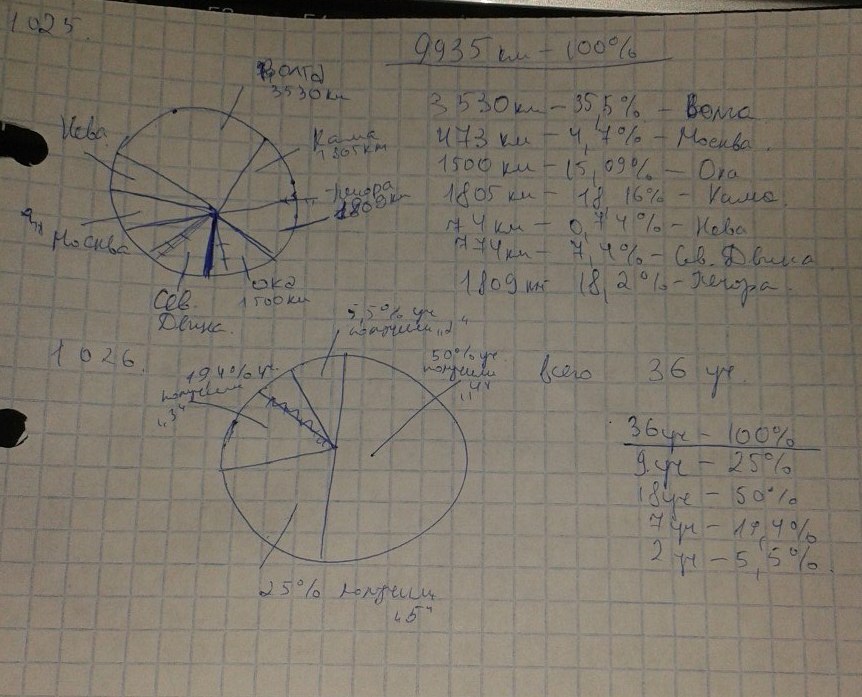 1025.
9935 км – 100%
Волга
3530 км
Нева
Кама
1805 км
Печора
1800 км
Москва
Сев.
Двина.
Ока
1500 км
3530 км – 35,5% – Волга
473 км – 4,7% – Москва.
1500 км – 15,09% – Ока
1805 км – 18,16% – Кама.
74 км – 0,74% – Нева
774 км – 7,4% – Сев. Двина
1809 км – 18,2% – Печора.
1026.
5,5% уч.
получили „2“
19,4% уч.
получили
„3“
50% уч.
получили
„4“
25% получили
„5“
всего 36 уч.
36 уч – 100%
9 уч – 25%
18 уч – 50%
7 уч – 19,4%
2 уч – 5,5%.